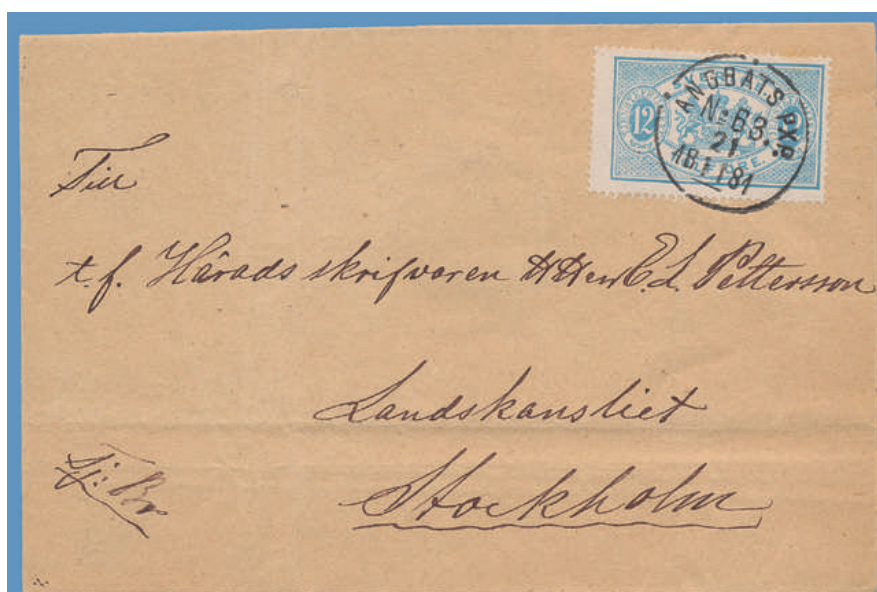 ÅNGBÅTS PXP
No 63.
21
1881
12
Till
t.f. Härads skrifvaren H Herr E. L. Pettersson
Landskansliet
Tj: Br
Stockholm